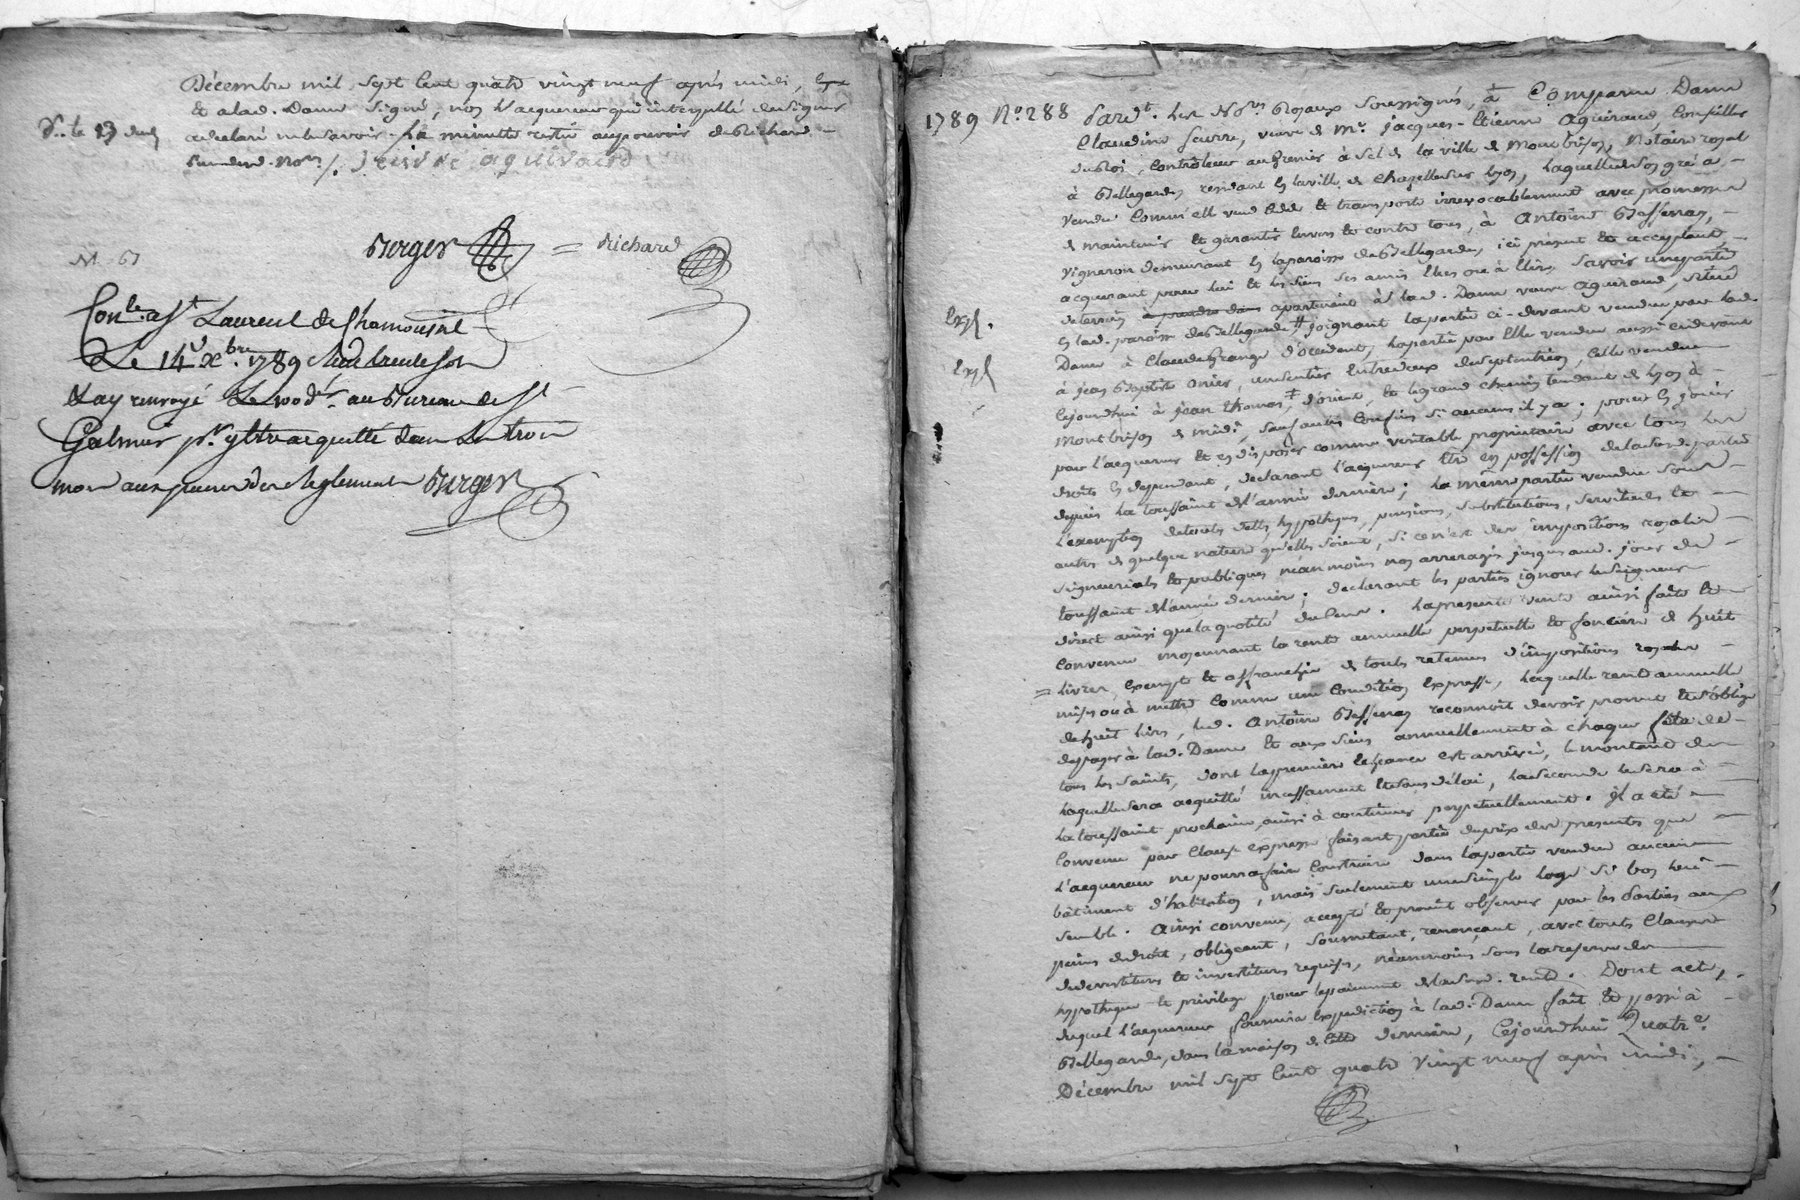 Décembre mil sept cent quatre vingt neuf après midi,
& a lad. Dame signé, non l'acquereur qui interpellé de signer
a declaré ne le savoir. La minute restée au pouvoir de Richard
Nores /. feurre aguiraud
Burger = Richard
Conle. a St Laurent de Chamousset
Le 14 Xbre 1789
& ay renvoyé au Bureau de St
Galmier pr y etre acquitté dans le trois
mois aux peines des Reglements Burger
1789 No. 288 Pard.t les No.res Royaux soussignés, a Comparu Dame
Claudine feurre, veuve de Mr. Jacques-Etienne Aguiraud Conseiller
du Roi, Contrôleur au Grenier à Sel de la ville de Montbrison, Notaire royal
à Bellegarde, résidant en la ville de Chazelles sur Lyon, laquelle de son gré a
vendu comm'elle vend cede & transporte irrevocablement avec promesse
de maintenir & garantir envers & contre tous, à Antoine Bessenay,
vigneron demeurant en la paroisse de Bellegarde, ici présent & acceptant
acquerant pour lui & les siens ses amis elus ou à elire, savoir une partie
de terrein a prendre dans apartenant à lad. Dame veuve Aguiraud, située
en lad. paroisse de Bellegarde # joignant la partie ci-devant vendue par lad.
Dame à Claude Grange d'occident, la partie par Elle vendue aussi cidevant
à jean Baptiste Orier, un sentier entredeux de septentrion, celle vendue
cejourdhui à jean thomas, d'orient, & le grand chemin tendant de Lyon à
Montbrison de midi, sauf autres confins si aucuns il y a; pour en jouir
par l'acquereur & en disposer comme veritable proprietaire avec tous les
droits en dependant, declarant l'acquereur être en possession de lad. partie
depuis la toussaint de l'année derniere; la même partie vendue sous
l'exemption de toutes dettes, hypotheques, pensions, substitutions, servitudes &
autres de quelque nature qu'elles soient, si ce n'est des impositions royales
seigneuriales & publiques néanmoins non arreragés jusques aud. jour de
toussaint de l'année derniere; declarant les parties ignorer le seigneur
direct ainsi que la quotité du Cens. La presente vente ainsi faite &
convenue moyennant la rente annuelle perpetuelle & fonciere de huit
= livres, exempte & affranchie de toutes retenues d'impositions royales
mises ou à mettre comme une condition expresse, laquelle rente annuelle
de huit livres, led. Antoine Bessenay reconnoit devoir promet & s'oblige
de payer à lad. Dame & aux siens annuellement à chaque fête de
tous les saints, dont la premiere échéance est arrivée, le montant de
laquelle sera acquitté incessament & sans délai, la seconde le sera à
la toussaint prochaine, ainsi à continuer perpetuellement. Il a eté
convenu par clause expresse faisant partie du prix des presentes que
l'acquereur ne pourra faire construire dans la partie vendue aucun
bâtiment d'habitation, mais seulement une simple loge si bon lui
semble. Ainsi convenu, accepté & promit observer par les parties aux
peines de droit, obligeant, soumettant, renonçant, avec toutes clauses
de devestitures & investitures requises, néanmoins sous la reserve de
hypotheque & privilege pour le paiement de lad. rente. Dont acte,
duquel l'acquereur fournira Expedition à lad. Dame fait & passé à
Bellegarde, dans la maison de cette derniere, Cejourdhui Quatre
Décembre mil sept cent quatre vingt neuf après midi,